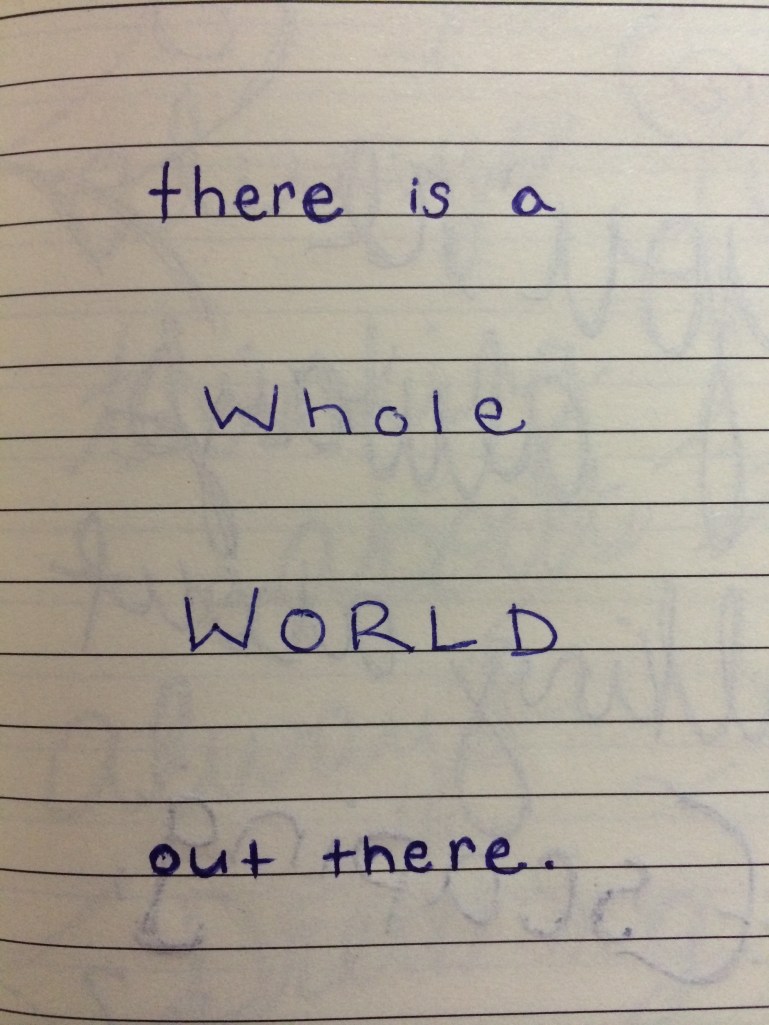 there is a
Whole
WORLD
out there.